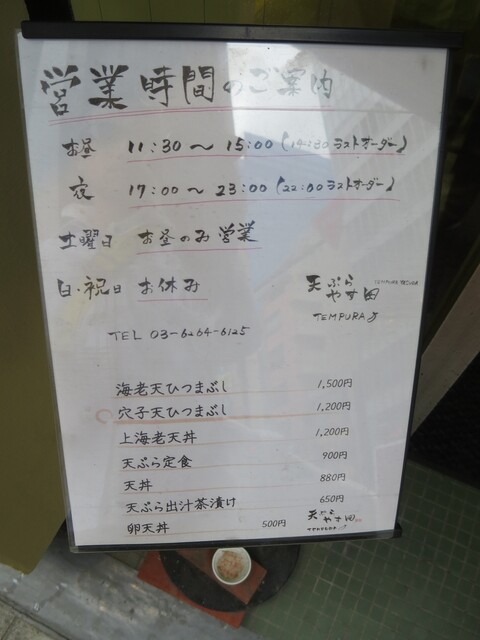 営業時間のご案内
お昼 11:30～15:00(14:30ラストオーダー)
夜 17:00～23:00(22:00ラストオーダー)
土曜日 お昼のみ営業
日・祝日 お休み
天ぷら
やす田
TEMPURA
TEL 03-6264-6125
海老天ひつまぶし 1,500円
穴子天ひつまぶし 1,200円
上海老天丼 1,200円
天ぷら定食 900円
天丼 880円
天ぷら出汁茶漬け 650円
卵天丼 500円
天ぷら
やす田